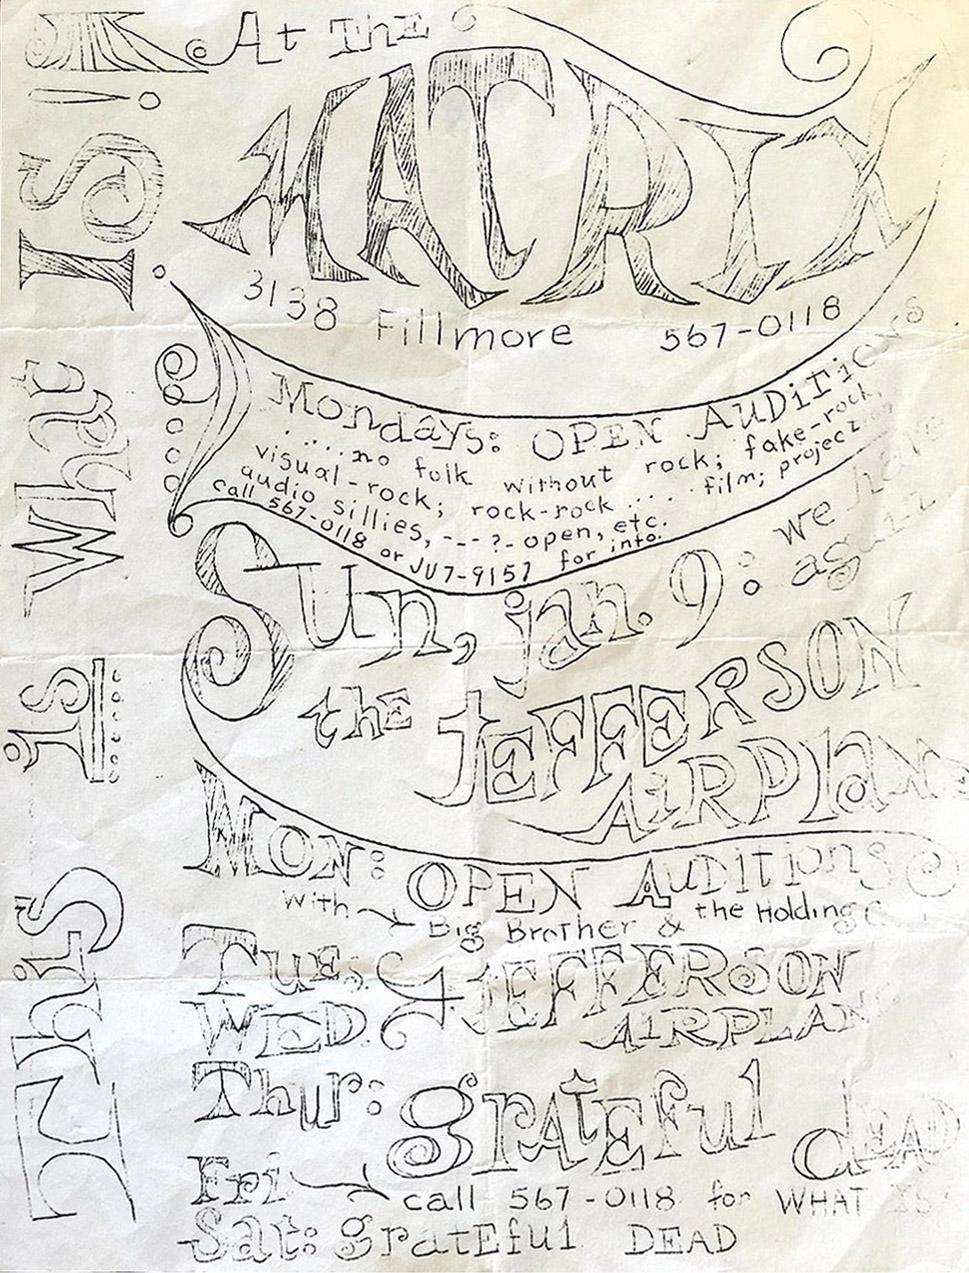 This is What IS!
At the
MATRIX
3138 Fillmore 567-0118
Mondays: OPEN AUDITIONS
.....no folk without rock; fake-rock,
visual-rock; rock-rock .... film; projection
audio sillies, ---?- open, etc.
call 567-0118 or JU7-9157 for info.
Sun, jan. 9: we have
again
the JEFFERSON
AIRPLANE
MON: OPEN AUDITIONS
with Big Brother & the Holding
TUES. & JEFFERSON
WED. AIRPLANE
Thur: grateful dEAD
Fri call 567-0118 for WHAT IS!
Sat: gratEful DEAD